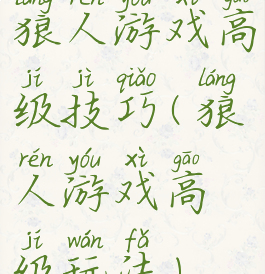 láng rén yóu xì gāo
狼人游戏高
jí jì qiǎo láng
级技巧(狼
rén yóu xì gāo
人游戏高
jí wán fǎ
级玩法)